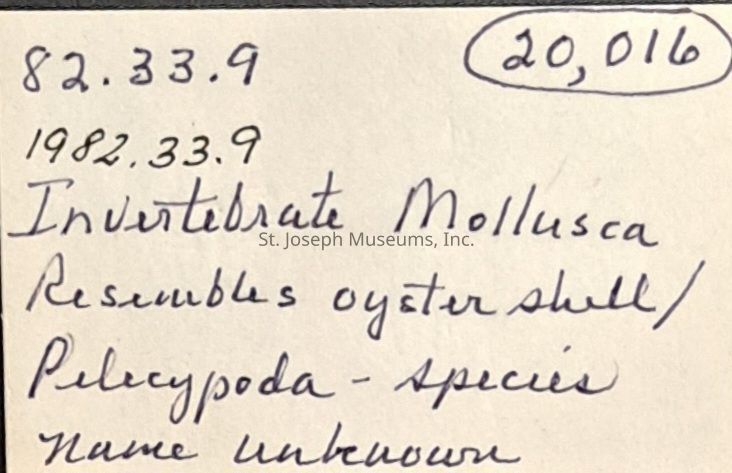 82.33.9 20,016
1982.33.9
Invertebrate Mollusca
St. Joseph Museums, Inc.
Resembles oyster shell/
Pelecypoda - species
name unknown